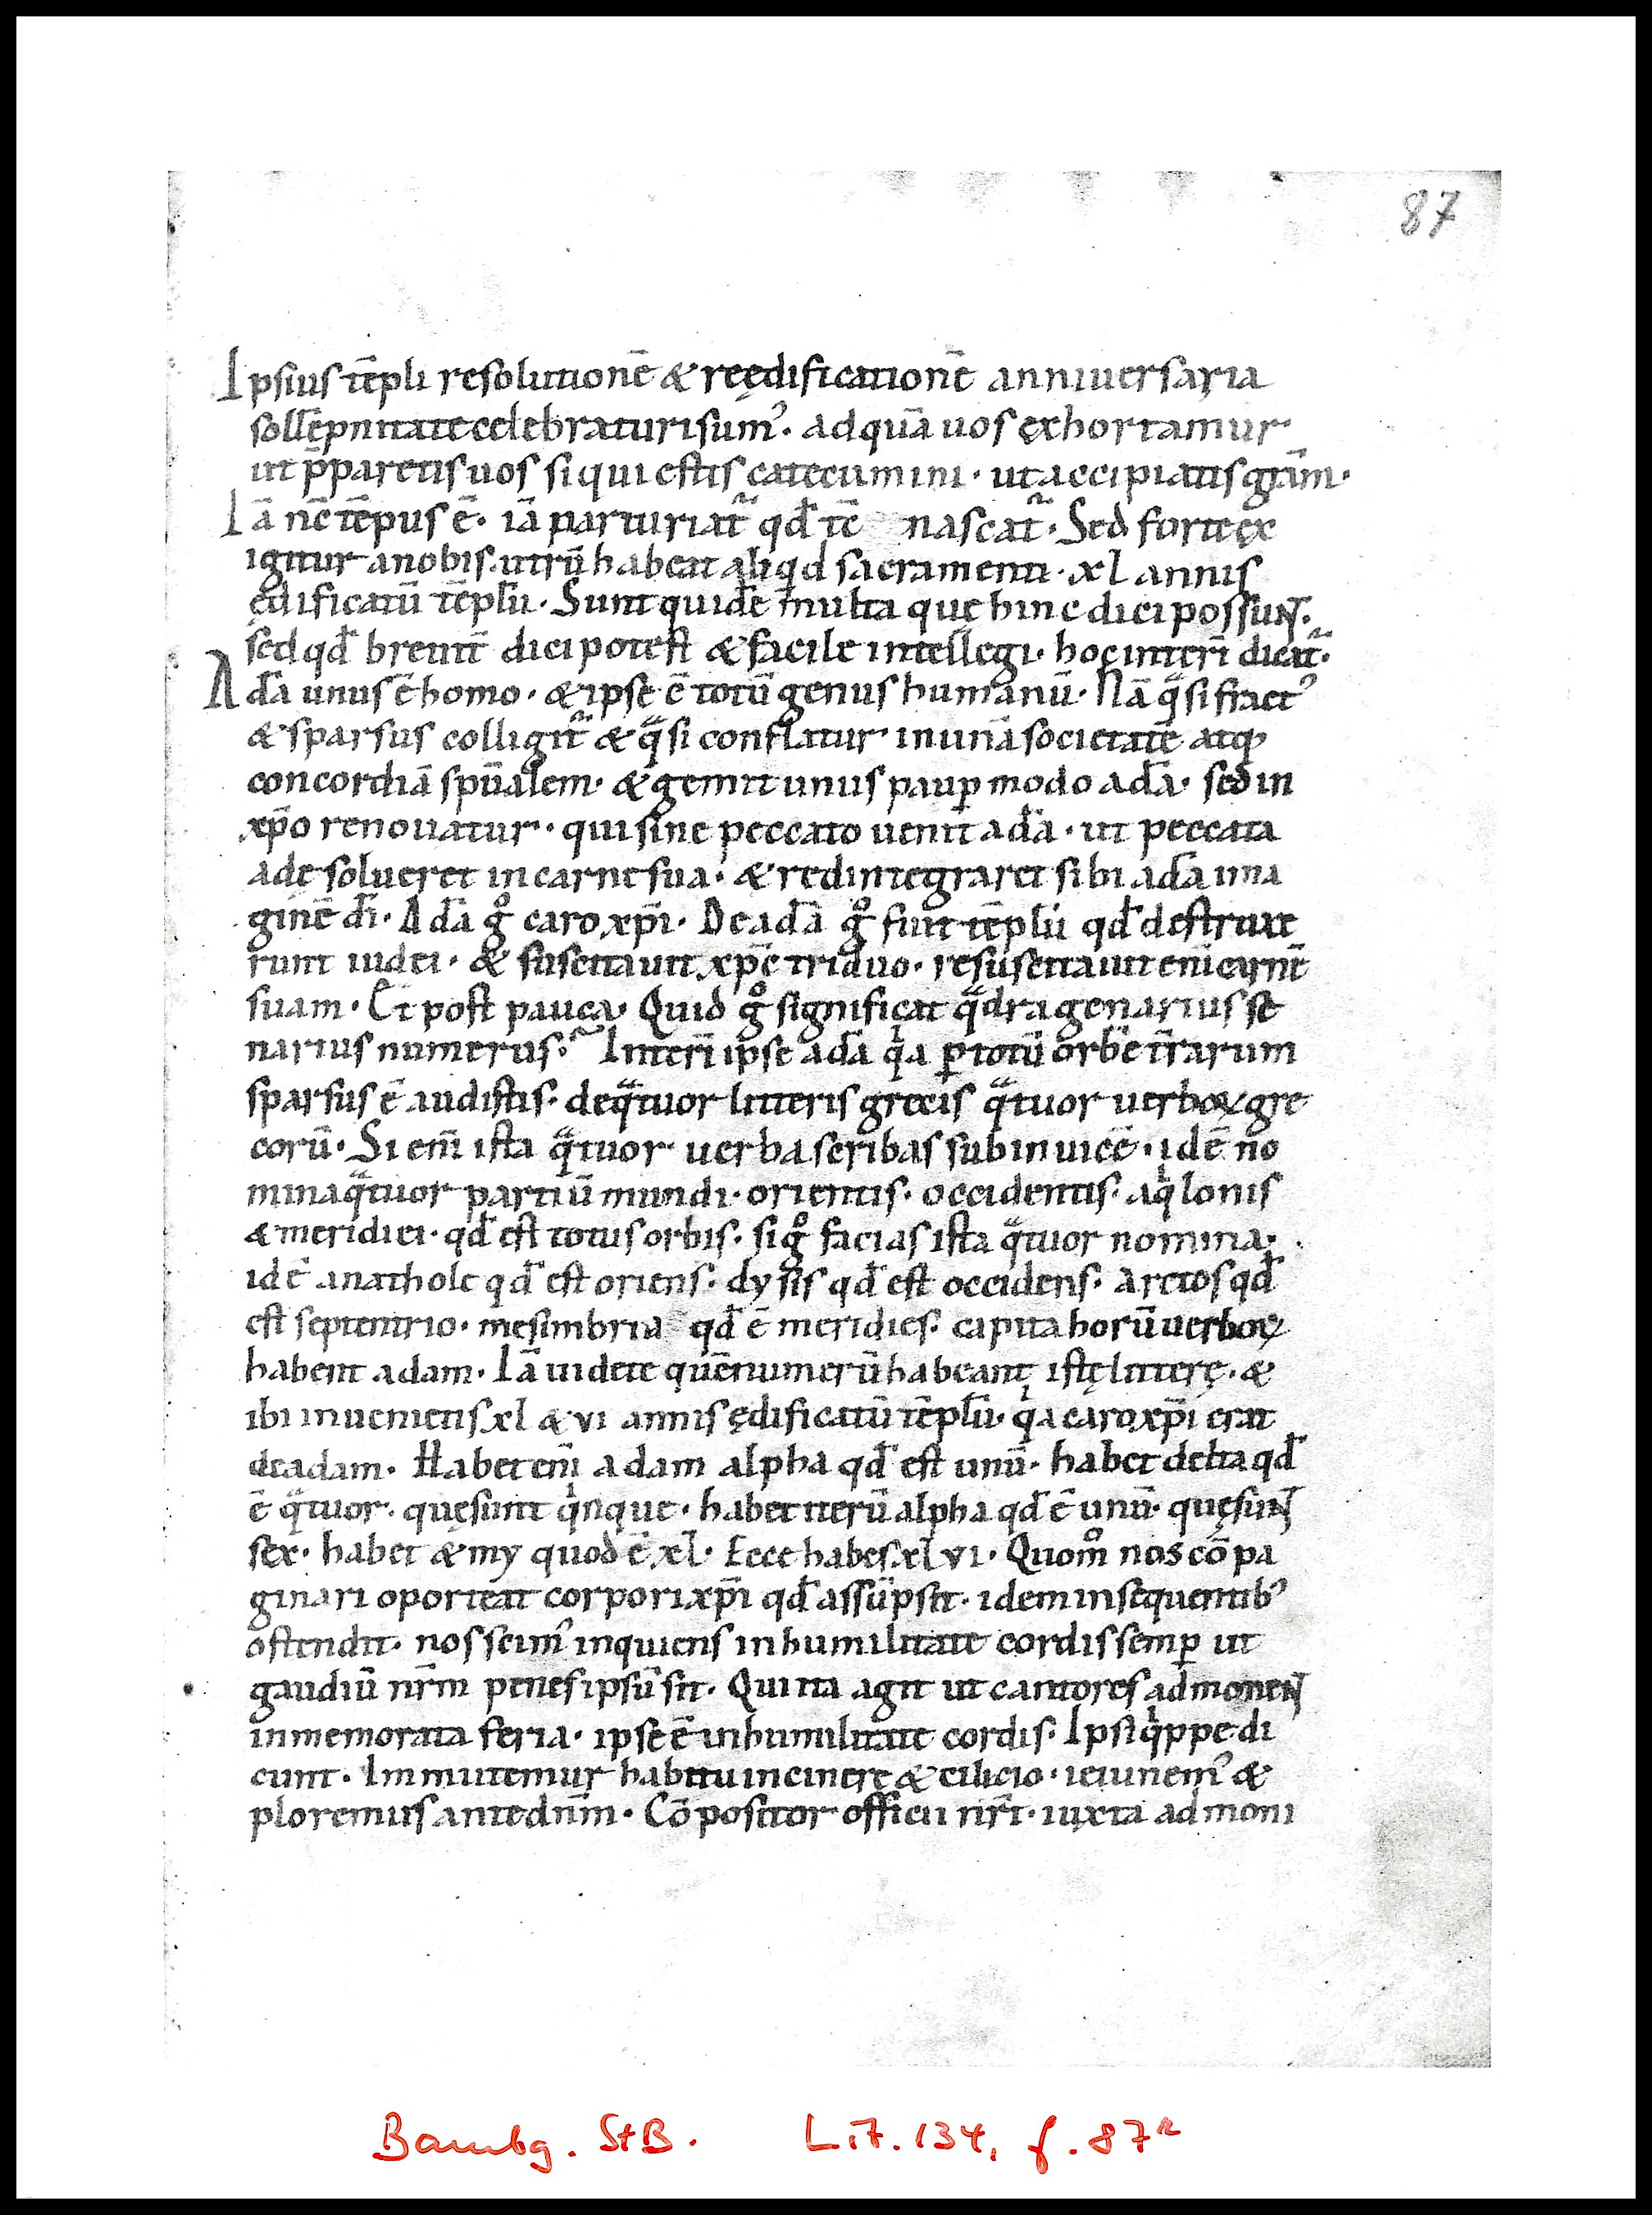 87
Ipsius tēpli resolutionē & reędificationē anniuersaria
sollēpnitate celebraturi sum᾽. ad quā uos exhortamur
ut p̄paretis uos si qui estis catecumini. ut accipiatis grām.
Iā nc̄ tēpus ē. iā parturiat᷑ qd̄ tc̄ nascat᷑. Sed forte ex
igitur a nobis. utrū habeat aliqd sacramenti. xl annis
ędificatū tēplū. Sunt quidē multa quę hinc dici possunt.
sed qd̄ breuit̄ dici potest & facile intellegi. hoc interī dicat᷑.
Adā unus ē homo. & ipse ē totū genus humanū. Nā qͣsi fract᾽
& sparsus colligit᷑ & qͣsi conflatur in unā societatē atq;
concordiā spūalem. & gemit unus paup̱ modo adā. sed in
xp̄o renouatur. qui sine peccato uenit adā. ut peccata
ade solueret in carne sua. & redintegraret sibi adā ima
ginē dī. Adā gͦ caro xp̄i. De adā gͦ fuit tēplū qd̄ destruxe
runt iudei. & suscitauit xp̄c triduo. resuscitauit enī carnē
suam. Et post pauca. Quid gͦ significat qͣdragenarius se
narius numerus? Interī ipse adā qͥa p̱ totū orbē tr̄rarum
sparsus ē audistis. de qͣtuor litteris grecis qͣtuor uerboꝝ gre
corū. Si em̄ ista qͣtuor uerba scribas sub inuicē. idē no
mina qͣtuor partiū mundi. orientis. occidentis. aqͥlonis
& meridiei. qd̄ est totus orbis. si gͦ facias ista qͣtuor nomina.
idē anathole qd̄ est oriens. dysis qd̄ est occidens. Arctos qd̄
est septentrio. mesimbria qd̄ ē meridies. capita horū uerboꝝ
habent adam. Iā uidete quē numerū habeant istę litterę. &
ibi inuenietis xl & vi annis ędificatū tēplū. qͥa caro xp̄i erat
de adam. Habet enī adam alpha qd̄ est unū. habet delta qd̄
ē qͣtuor. quę sunt qͥnque. habet iterū alpha qd̄ ē unū. quę sunt
sex. habet & my quod ē xl. Ecce habes xl vi. Quomͦ nos cōpa
ginari oporteat corpori xp̄i qd̄ assūpsit. idem in sequentib᾽
ostendit. nos scim᾽ inquiens in humilitate cordis semp̱ ut
gaudiū nr̄m penes ipsū sit. Qui ita agit ut cantores admonent
in memorata feria. ipse ē in humilitate cordis. Ipsi qͥppe di
cunt. Immutemur habitu in cinere & cilicio. ieiunem᾽ &
ploremus ante dn̄m. Cōpositor officii nr̄i. iuxta admoni
Bambg. StB. Lit. 134, f. 87ʳ